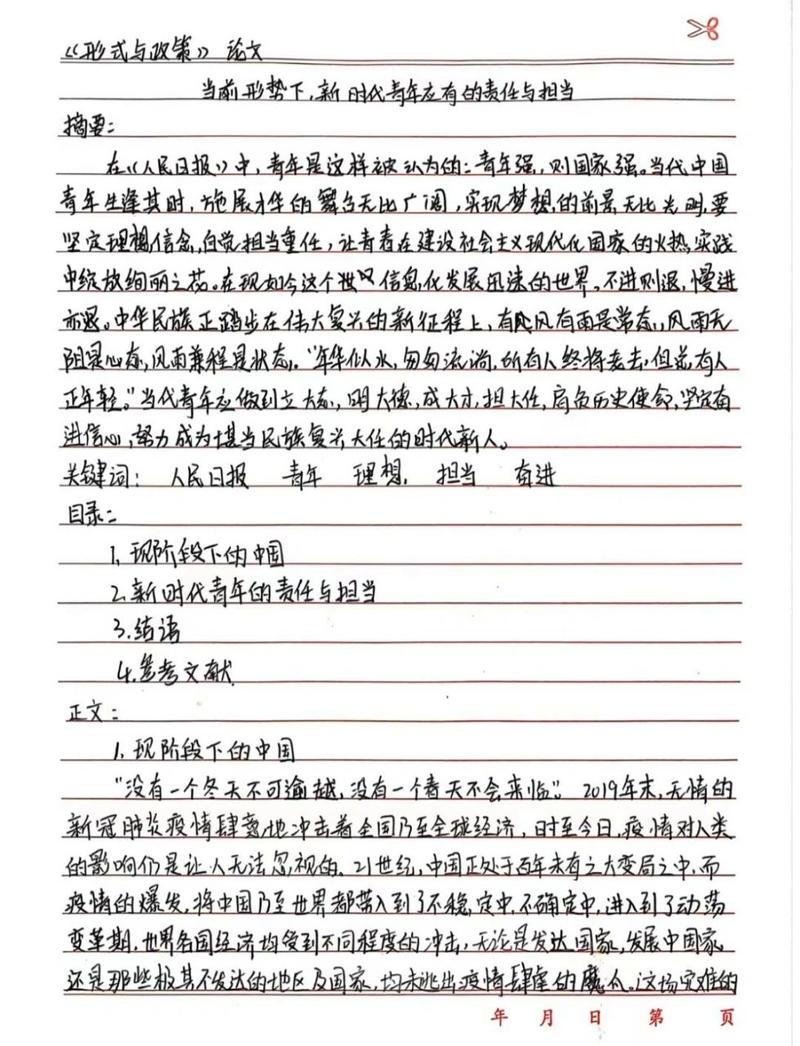 《形式与政策》论文
当前形势下,新时代青年应有的责任与担当
摘要:
在《人民日报》中,青年是这样被认为的:青年强,则国家强。当代中国
青年生逢其时,施展才华的舞台无比广阔,实现梦想的前景无比光明,要
坚定理想信念,自觉担当重任,让青春在建设社会主义现代化国家的火热实践
中绽放绚丽之花。在现如今这个信息化发展迅速的世界,不进则退,慢进
亦退。中华民族正踏步在伟大复兴的新征程上,有风有雨是常态,风雨无
阻是心态,风雨兼程是状态。“年华似水,匆匆流淌,所有人终将老去,但总有人
正年轻。”当代青年应做到立大志,明大德,成大才,担大任,肩负历史使命,坚定奋
进信心,努力成为堪当民族复兴大任的时代新人。
关键词: 人民日报 青年 理想 担当 奋进
目录:
1.现阶段下的中国
2.新时代青年的责任与担当
3.结语
4.参考文献
正文:
1.现阶段下的中国
“没有一个冬天不可逾越,没有一个春天不会来临”。2019年末,无情的
新冠肺炎疫情肆意地冲击着全国乃至全球经济,时至今日,疫情对人类
的影响仍是让人无法忽视的。21世纪,中国正处于百年未有之大变局之中,而
疫情的爆发,将中国乃至世界都带入到了不稳定中,不确定中,进入到了动荡
变革期,世界各国经济均受到不同程度的冲击,无论是发达国家,发展中国家
还是那些极其不发达的地区及国家,均未逃出疫情肆虐的魔爪。这场灾难的
年 月 日 第 页